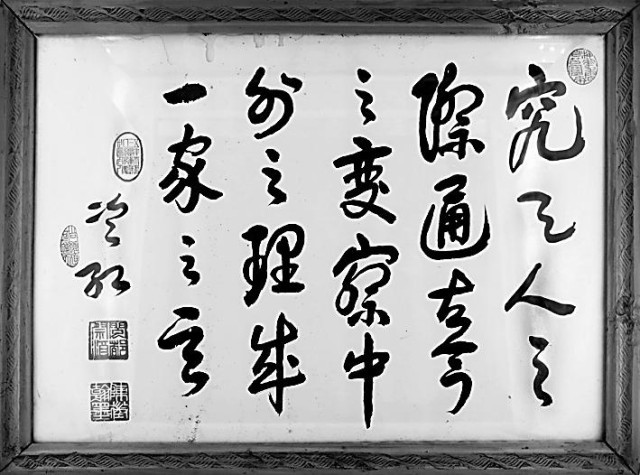 究天人之
际通古今
之变察中
外之理成
一家之言